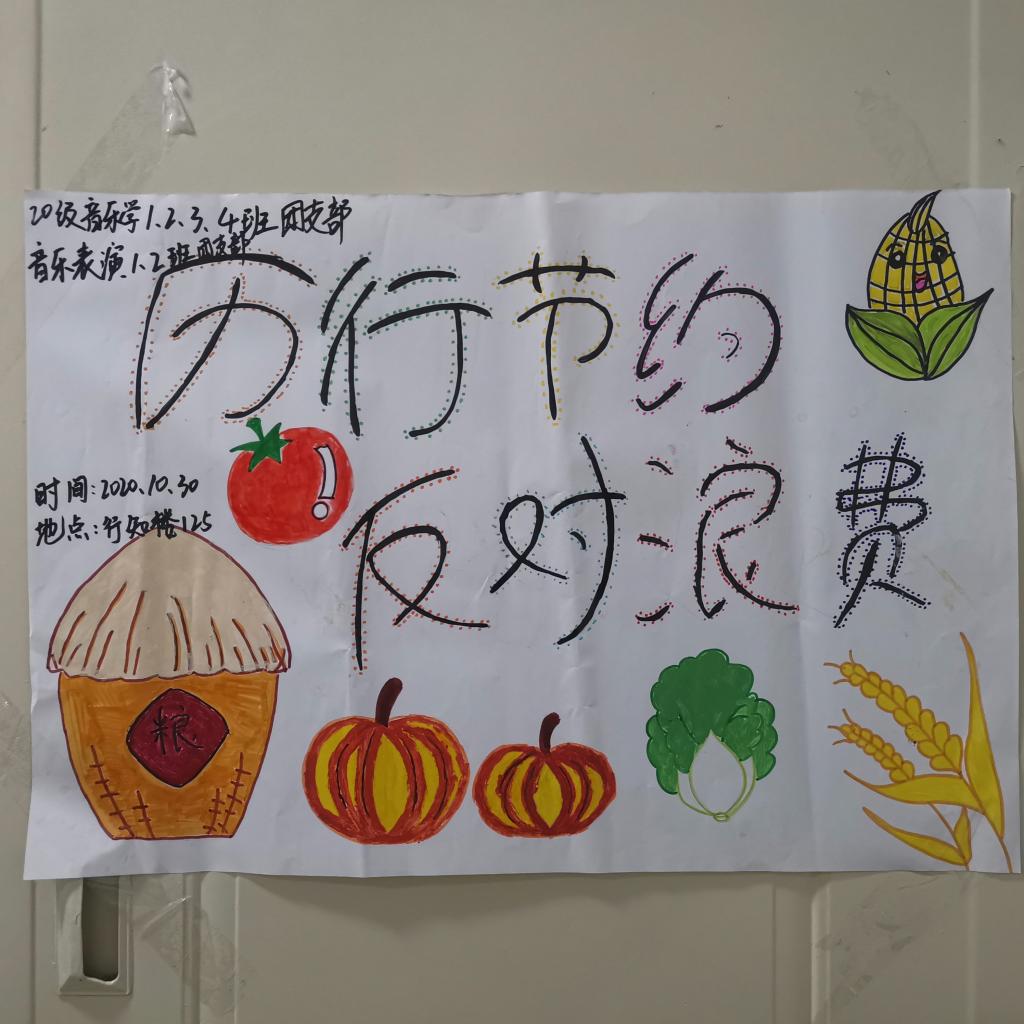 20级音乐学1.2.3.4班团支部
音乐表演1.2班团支部
厉行节约
反对浪费
时间:2020.10.30
地点:行知楼125
粮